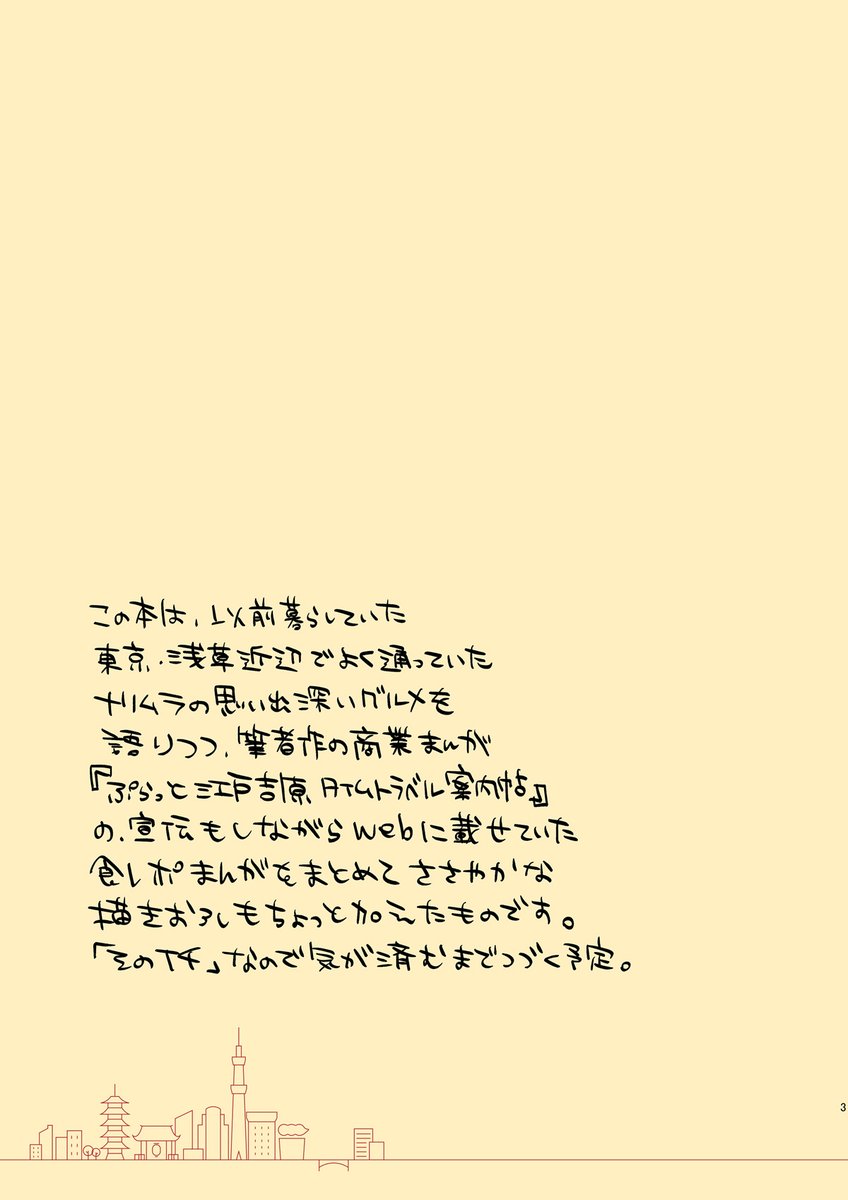 この本は、以前暮らしていた
東京・浅草近辺でよく通っていた
ナリムラの思い出深いグルメを
語りつつ、筆者作の商業まんが
『ぷらっと江戸吉原タイムトラベル案内帖』
の、宣伝もしながらwebに載せていた
食レポまんがをまとめてささやかな
描きおろしもちょっと加えたものです。
「その1」なので気が済むまでつづく予定。
3